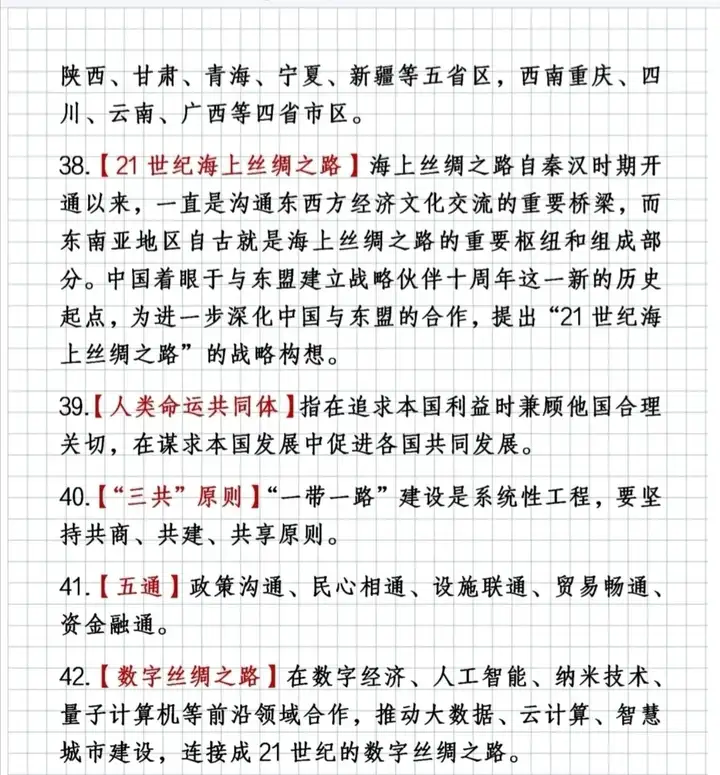 陕西、甘肃、青海、宁夏、新疆等五省区，西南重庆、四
川、云南、广西等四省市区。
38.【21世纪海上丝绸之路】海上丝绸之路自秦汉时期开
通以来，一直是沟通东西方经济文化交流的重要桥梁，而
东南亚地区自古就是海上丝绸之路的重要枢纽和组成部
分。中国着眼于与东盟建立战略伙伴十周年这一新的历史
起点，为进一步深化中国与东盟的合作，提出“21世纪海
上丝绸之路”的战略构想。
39.【人类命运共同体】指在追求本国利益时兼顾他国合理
关切，在谋求本国发展中促进各国共同发展。
40.【“三共”原则】“一带一路”建设是系统性工程，要坚
持共商、共建、共享原则。
41.【五通】政策沟通、民心相通、设施联通、贸易畅通、
资金融通。
42.【数字丝绸之路】在数字经济、人工智能、纳米技术、
量子计算机等前沿领域合作，推动大数据、云计算、智慧
城市建设，连接成21世纪的数字丝绸之路。